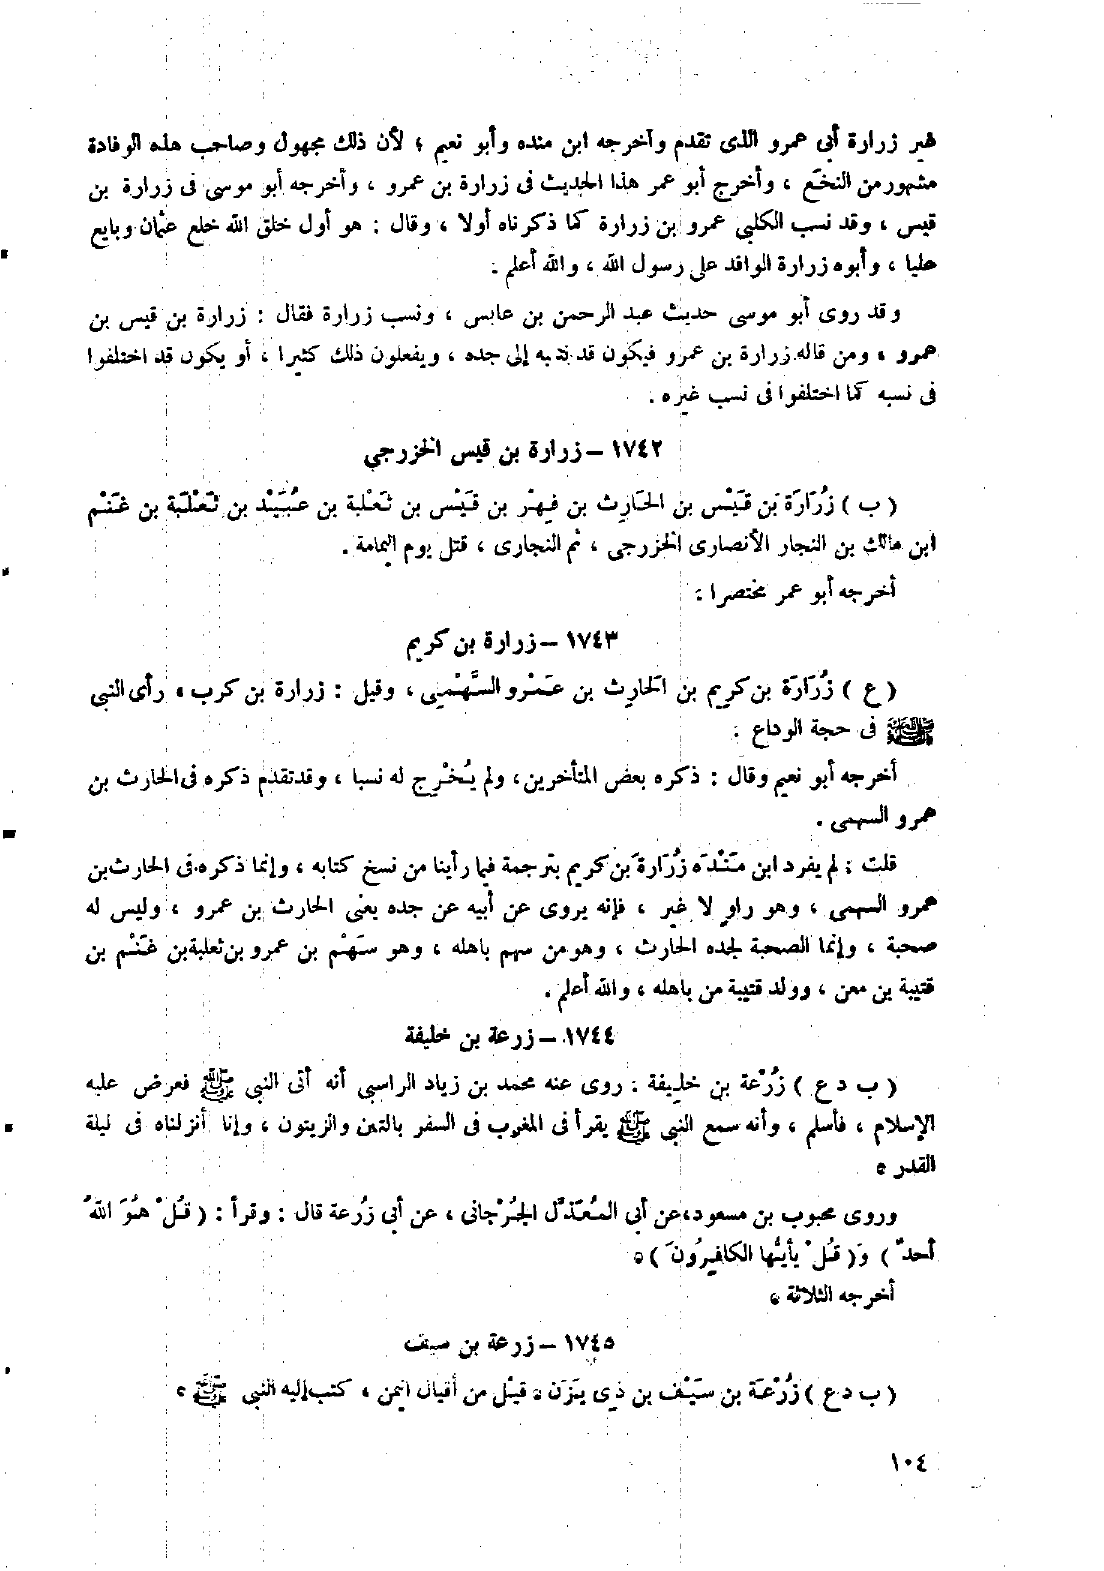 غير زرارة أبي عمرو الذى تقدم وآخرجه ابن منده وأبو نعيم ؛ لأن ذلك مجهول وصاحب هذه الوفادة
مشهور من النخع ، وأخرج أبو عمر هذا الحديث فى زرارة بن عمرو ، وأخرجه أبو موسى فى زرارة بن
قيس ، وقد نسب الكلبي عمرو بن زرارة كما ذكرناه أولا ، وقال : هو أول خلق الله خلع عثمان وبايع
عليا ، وأبوه زرارة الوافد على رسول الله ، والله أعلم .
وقد روى أبو موسى حديث عبد الرحمن بن عابس ، ونسب زرارة فقال : زرارة بن قيس بن
عمرو ، ومن قاله زرارة بن عمرو فيكون قد نسبه إلى جده ، ويفعلون ذلك كثيرا ، أو يكون قد اختلفوا
فى نسبه كما اختلفوا فى نسب غيره .
١٧٤٢ – زرارة بن قيس الخزرجي
( ب ) زُرَارَة بَن قَيْس بن الحَارِث بن فِهْر بن قَيْس بن ثَعْلبة بن عُبَيْد بن ثَعْلَبَة بن غَنْم
ابن مالك بن النجار الأنصارى الخزرجى ، ثم النجارى ، قتل يوم اليمامة .
أخرجه أبو عمر مختصرا :
١٧٤٣ – زرارة بن كريم
( ع ) زُرَارَة بن كريم بن الحَارِث بن عَمْرو السَّهْمِى ، وقيل : زرارة بن كرب ، رأى النبى
ﷺ فى حجة الوداع :
أخرجه أبو نعيم وقال : ذكره بعض المتأخرين، ولم يُخْرِج له نسبا ، وقد تقدم ذكره فى الحارث بن
عمرو السهمى .
قلت : لم يفرد ابن مَنْدَه زُرَارَة بن كريم بترجمة فيما رأينا من نسخ كتابه ، وإنما ذكره فى الحارث بن
عمرو السهمى ، وهو راوٍ لا غير ، فإنه يروى عن أبيه عن جده يعنى الحارث بن عمرو ، وليس له
صحبة ، وإنما الصحبة لجده الحارث ، وهو من سهم باهله ، وهو سَهْم بن عمرو بن ثعلبة بن غَنْم بن
قتيبة بن معن ، وولد قتيبة من باهله ، والله أعلم .
١٧٤٤ – زرعة بن خليفة
( ب د ع ) زُرْعة بن خليفة : روى عنه محمد بن زياد الراسبي أنه أتى النبى ﷺ فعرض عليه
الإسلام ، فأسلم ، وأنه سمع النبى ﷺ يقرأ فى المغرب فى السفر بالتين والزيتون ، وإنا أنزلناه فى ليلة
القدر ،
وروى محبوب بن مسعود، عن أبي المُعَذَّل الجُرْجانى ، عن أبى زُرعة قال : وقرأ : ( قُلْ هُوَ اللهُ
أحدٌ ) وَ( قُلْ يأيُّها الكافِرُونَ ) ،
أخرجه الثلاثة ،
١٧٤٥ – زرعة بن سيف
( ب د ع ) زُرْعَة بن سَيْف بن ذى يَزَن ، قَيْل من أقيال اليمن ، كتب إليه النبى ﷺ ،
١٠٤